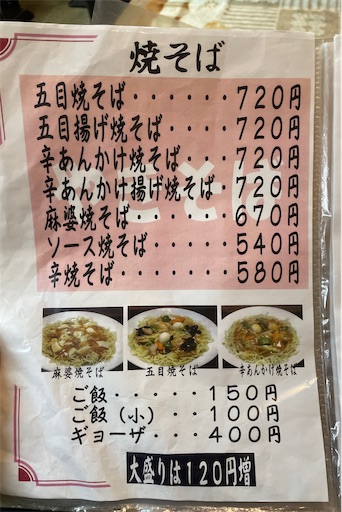 焼そば
五目焼そば・・・・・・・720円
五目揚げ焼そば・・・・・720円
辛あんかけ焼そば・・・・720円
辛あんかけ揚げ焼そば・720円
麻婆焼そば・・・・・・・670円
ソース焼そば・・・・・・540円
辛焼そば・・・・・・・・580円
麻婆焼そば 五目焼そば 辛あんかけ焼そば
ご飯・・・・・150円
ご飯(小)・・・100円
ギョーザ・・・・400円
大盛りは120円増